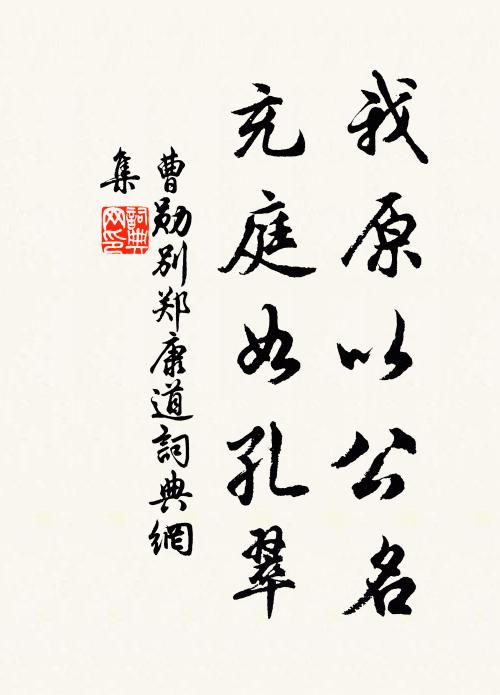 我原以公名
充庭如孔翠
曹勋别郑康道詞典網
集
詞典網印